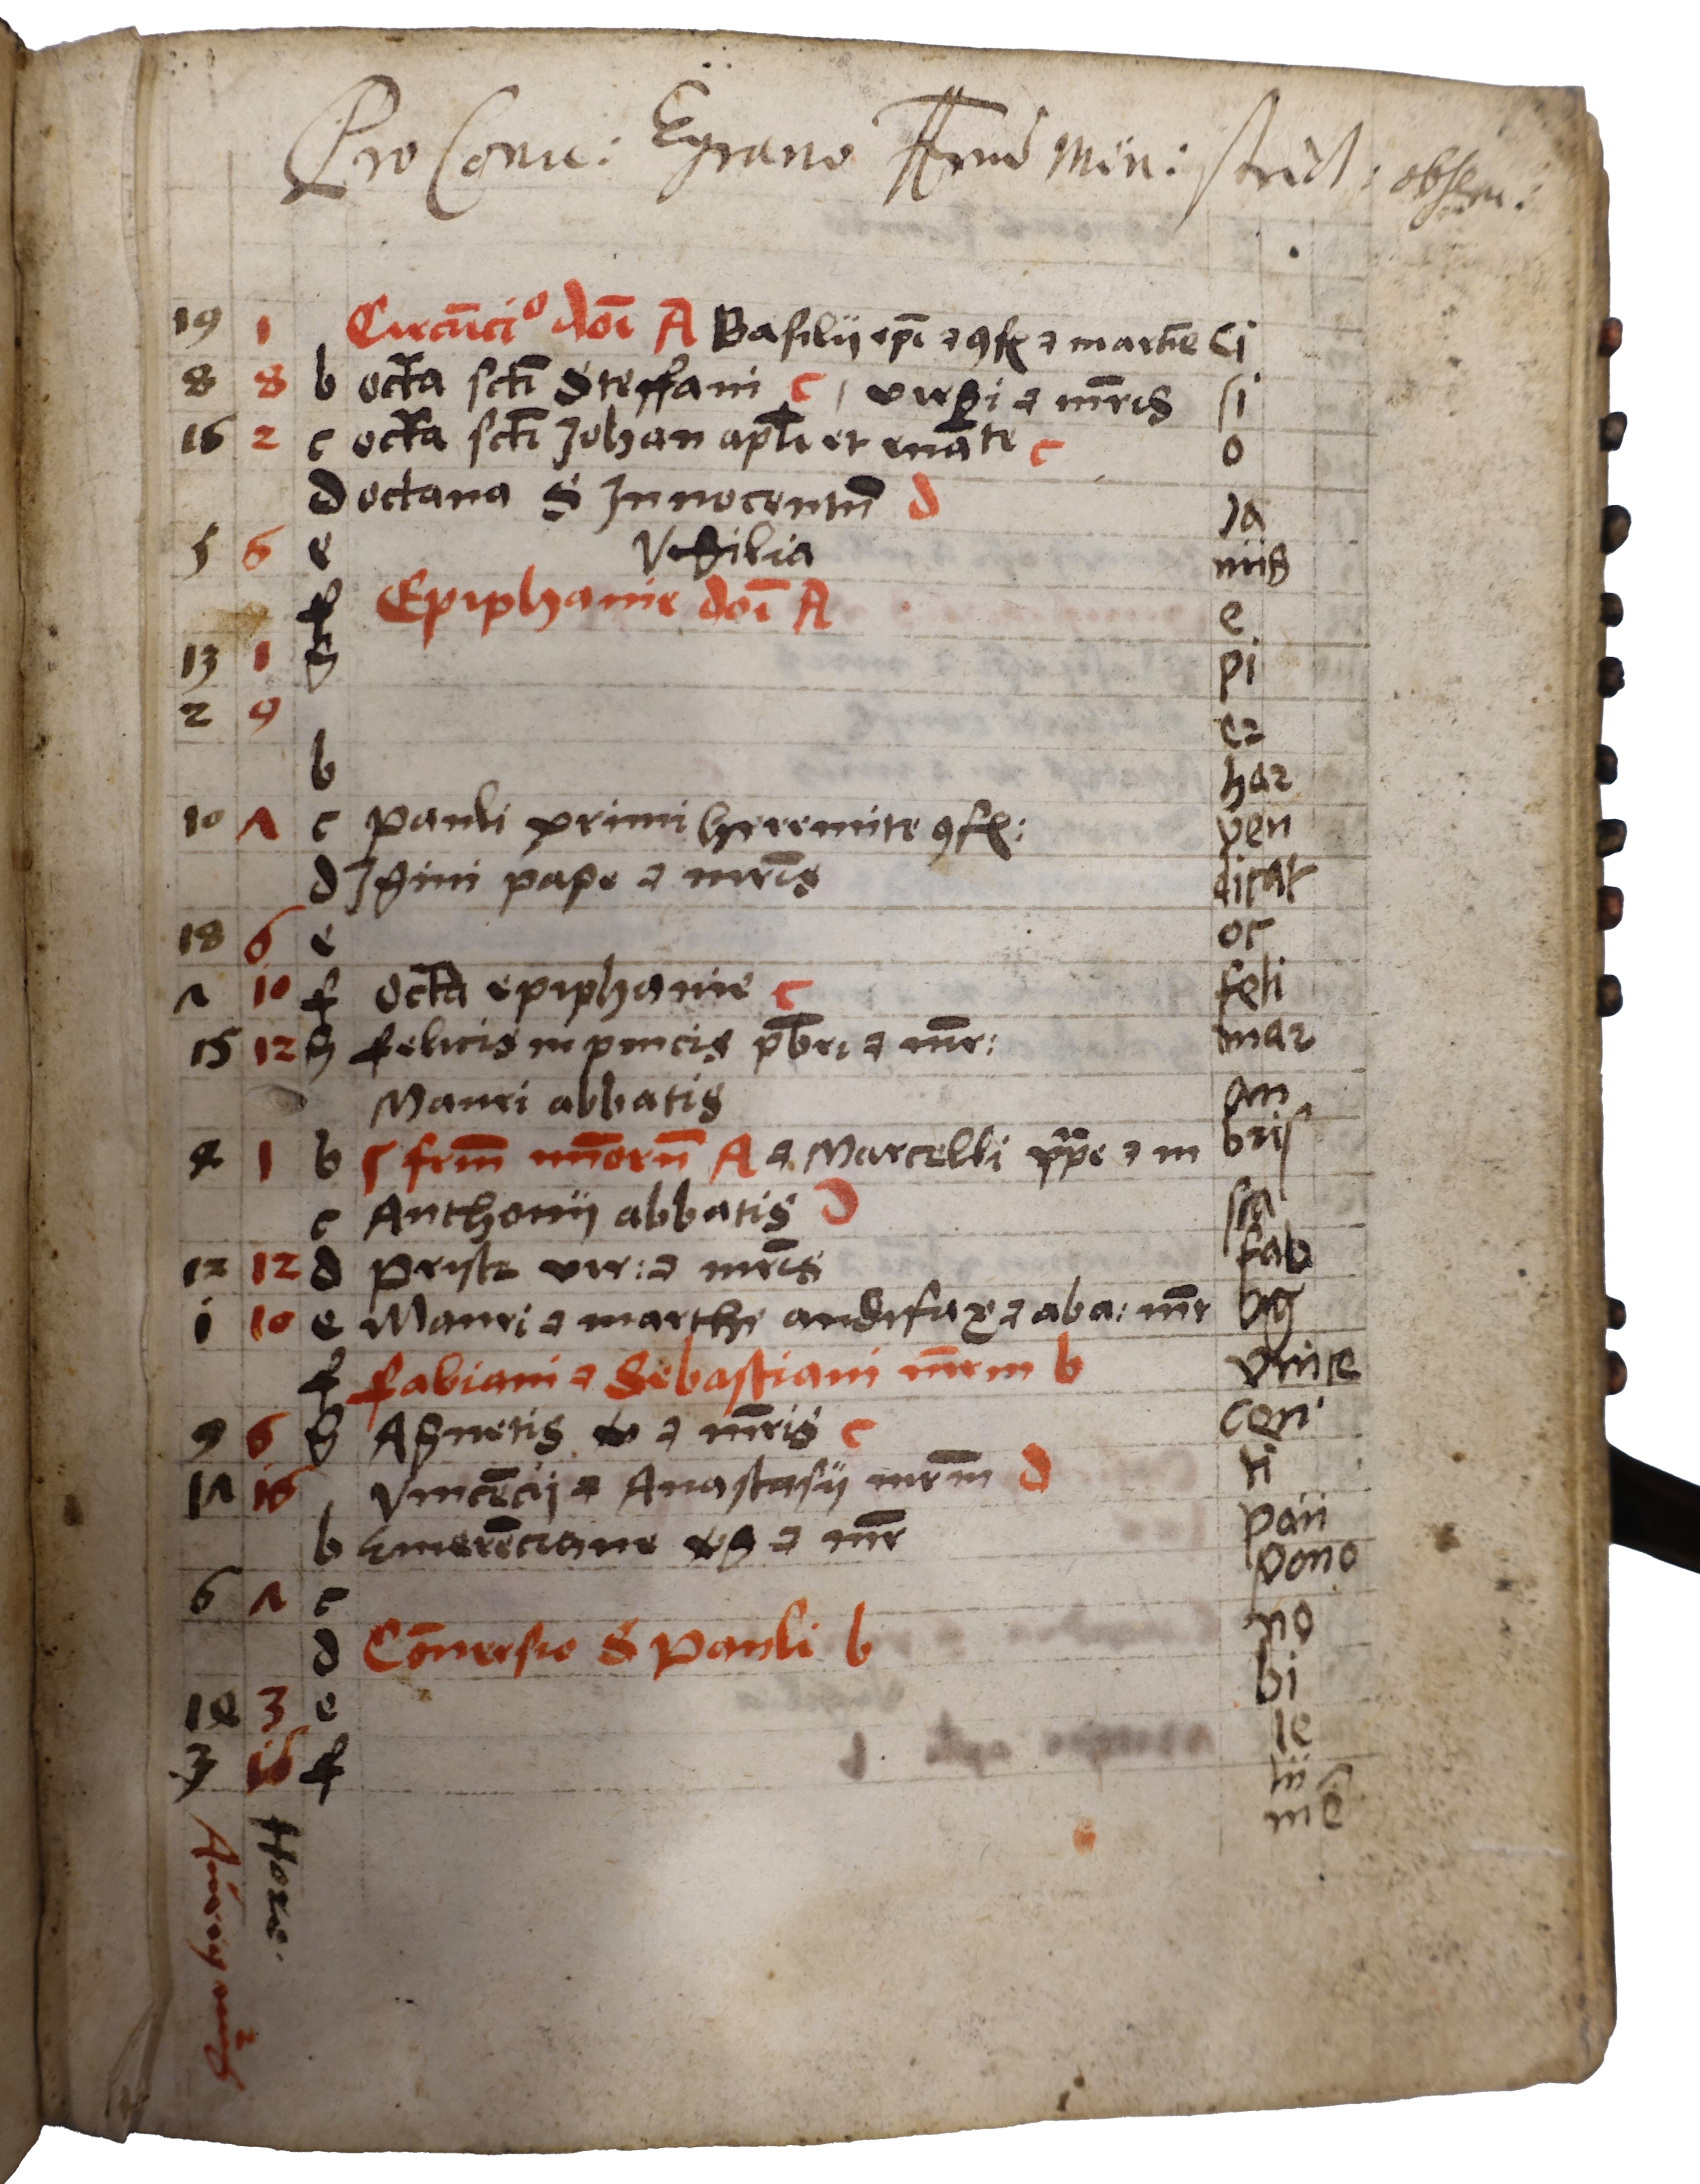 Pro Conu: Egrano Frūm Min: strict: obseru:
19 1 Circūci⁰ doī A Basilij epī ⁊ ꝯfꝭ ⁊ martīe Ci
8 8 b octa sctī Steffani c / ⁊ mr̄is si
16 2 c octa sctī Johan aplī et ewāte c o
d octaua S Innocentū d Ja
5 6 e Vigilia nus
f Epiphanie doī A e
13 1 g pi
2 9 ez
b haz
10 ʌ c Pauli primi heremite ꝯfꝭ: ven
d Igini pape ⁊ mr̄is dicat
18 6 e oc
ʌ 10 f octa epiphanie c feli
15 12 g felicis in pincis pb̄ri ⁊ mr̄: maz
Mauri abbatis an
4 1 b frm̄ mn̄orū A ⁊ Marcelli pp̄e ⁊ m bris
c Anthonij abbatis D sca
12 12 d Prisce vir: ⁊ mr̄is fab
i 10 e Mauri ⁊ marthe audifax ⁊ aba: mr̄ ag
f fabiani ⁊ Sebastiani mr̄m b vince
9 6 g Agnetis v ⁊ mr̄is c cen
1ʌ 16 Vincēcij ⁊ Anastasij mr̄m d ti
b Emerēciane vg ⁊ mr̄ pau
6 ʌ c pono
d Cōuersio S Pauli b no
14 3 e bi
3 16 f le
lu
mē
Hore.
Aureꝯ nu͛ꝯ